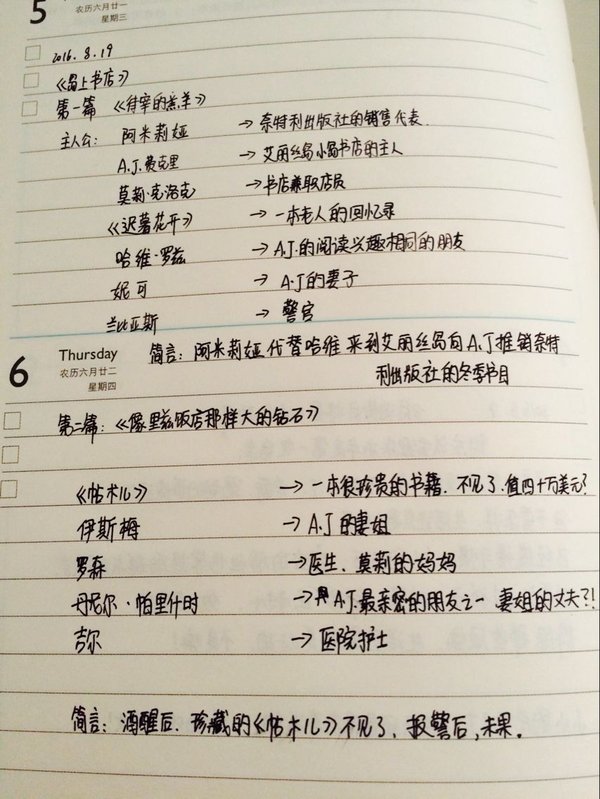 5
农历六月廿一
星期三
2016.8.19
《岛上书店》
第一篇 《待宰的羔羊》
主人公: 阿米莉娅 → 奈特利出版社的销售代表.
A.J.费克里 → 艾丽丝岛小岛书店的主人
莫莉·克洛克 → 书店兼职店员
《迟暮花开》 → 一本老人的回忆录
哈维·罗兹 → A.J.的阅读兴趣相同的朋友
妮可 → A.J的妻子
兰比亚斯 → 警官
6 Thursday
农历六月廿二
星期四
简言: 阿米莉娅代替哈维来到艾丽丝岛向A.J推销奈特
利出版社的冬季书目
第二篇: 《像里兹饭店那样大的钻石》
《帖木儿》 → 一本很珍贵的书籍.不见了.值四十万美元?
伊斯梅 → A.J的妻姐
罗森 → 医生.莫莉的妈妈
丹尼尔·帕里什时 → A.J最亲密的朋友之一 妻姐的丈夫?!
吉尔 → 医院护士
简言: 酒醒后.珍藏的《帖木儿》不见了.报警后,未果.